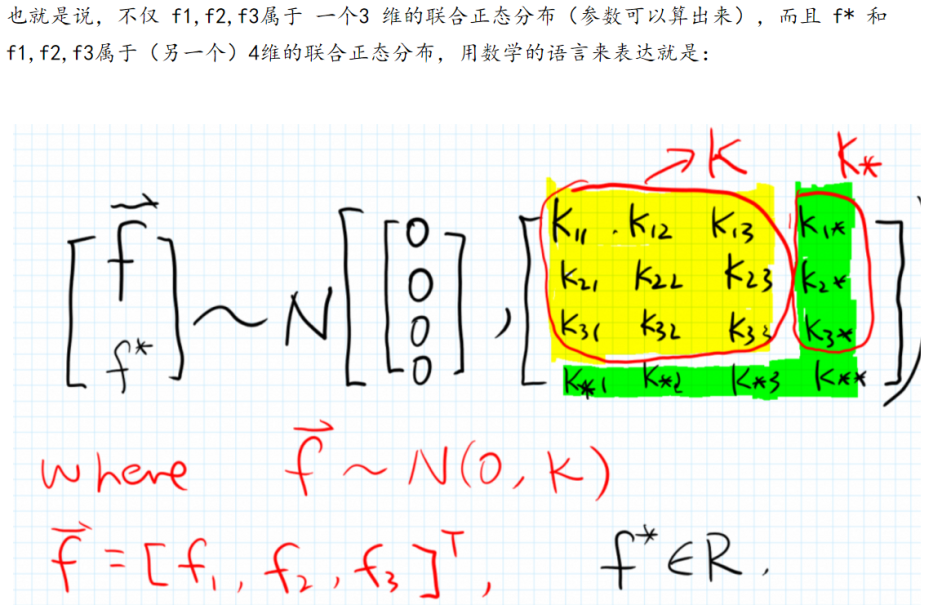 也就是说，不仅 f1,f2,f3属于 一个3 维的联合正态分布（参数可以算出来），而且 f* 和
f1,f2,f3属于（另一个）4维的联合正态分布，用数学的语言来表达就是：
→K K*
[f⃗ f*] ~ N[[0 0 0 0], [K11 . K12 K13 K1*
K21 K22 K23 K2*
K31 K32 K33 K3*
K*1 K*2 K*3 K**])
where f⃗ ~ N(0, K)
f⃗ = [f1, f2, f3]ᵀ, f* ∈ R.